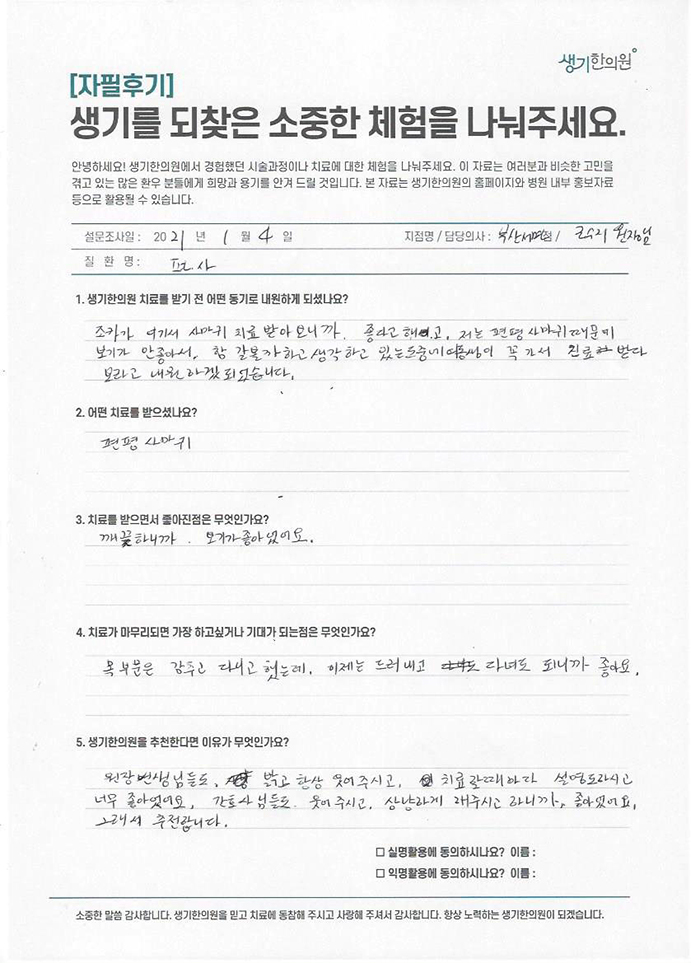 생기한의원
[자필후기]
생기를 되찾은 소중한 체험을 나눠주세요.
안녕하세요! 생기한의원에서 경험했던 시술과정이나 치료에 대한 체험을 나눠주세요. 이 자료는 여러분과 비슷한 고민을
겪고 있는 많은 환우 분들에게 희망과 용기를 안겨 드릴 것입니다. 본 자료는 생기한의원의 홈페이지와 병원 내부 홍보자료
등으로 활용될 수 있습니다.
설문조사일 : 2021 년 1 월 4 일 지점명 / 담당의사 : 부산서면점 / 원장님
질 환 명 : 편사
1. 생기한의원 치료를 받기 전 어떤 동기로 내원하게 되셨나요?
조카가 여기서 사마귀 치료 받아보니까. 좋다고 했고, 저는 편평사마귀 때문에
보기가 안좋아서, 참 갈봇가하고 생각하고 있는도중에 여동생이 꼭 가서 진료 받다
보라고 내원하겠되었습니다.
2. 어떤 치료를 받으셨나요?
편평 사마귀
3. 치료를 받으면서 좋아진점은 무엇인가요?
깨끗하니까. 보기가좋아있어요.
4. 치료가 마무리되면 가장 하고싶거나 기대가 되는점은 무엇인가요?
목부문은 감추고 다니고 했는데, 이제는 드러내고 다녀도 되니까 좋아요.
5. 생기한의원을 추천한다면 이유가 무엇인가요?
원장선생님들도, 밝고 항상 웃어주시고, 치료할때마다 설명도하시고
너무 좋아었어요, 간호사님들도 웃어주시고, 상냥하게 해주시고 하니까, 좋아있어요,
그래서 추천합니다.
□ 실명활용에 동의하시나요? 이름 :
□ 익명활용에 동의하시나요? 이름 :
소중한 말씀 감사합니다. 생기한의원을 믿고 치료에 동참해 주시고 사랑해 주셔서 감사합니다. 항상 노력하는 생기한의원이 되겠습니다.